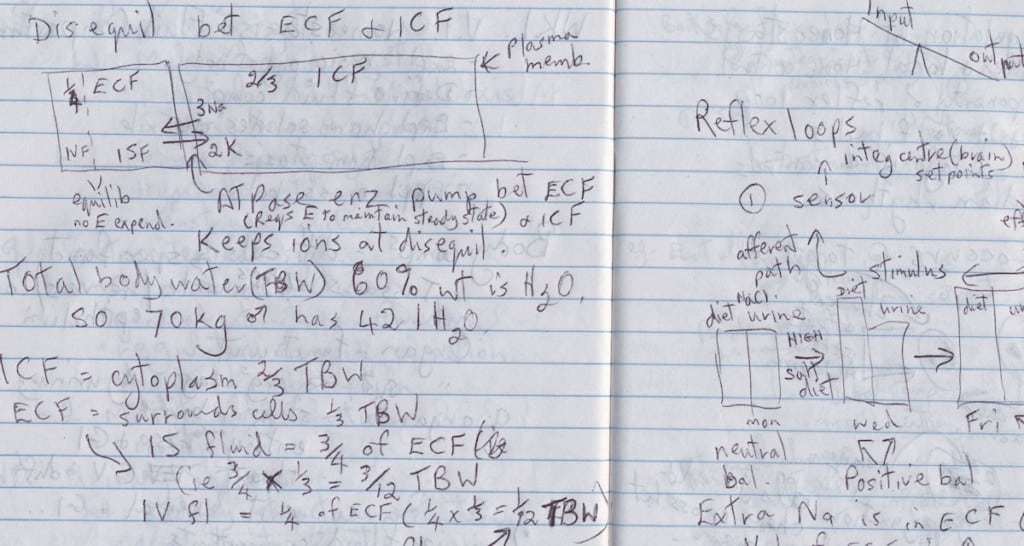 Disequil bet ECF & ICF
plasma
memb.
1/4 ECF
2/3 ICF
3Na
2K
ISF
equilib
no E expend.
ATPase enz pump bet ECF
(Reqs E to maintain steady state) & ICF
Keeps ions at disequil.
Total body water (TBW) 60% wt is H2O,
so 70kg ♂ has 42 l H2O
ICF = cytoplasm 2/3 TBW
ECF = surrounds cells 1/3 TBW
IS fluid = 3/4 of ECF
(ie 3/4 x 1/3 = 3/12 TBW
IV fl = 1/4 of ECF (1/4 x 1/3 = 1/12 TBW)
Input
output
Reflex loops
integ centre (brain)
setpoints
① sensor
afferent
path
stimulus
NaCl.
diet urine
HIGH
salt
diet
Diet
urine
diet
mon
wed
Fri
neutral
bal.
Positive bal
Extra Na is in ECF